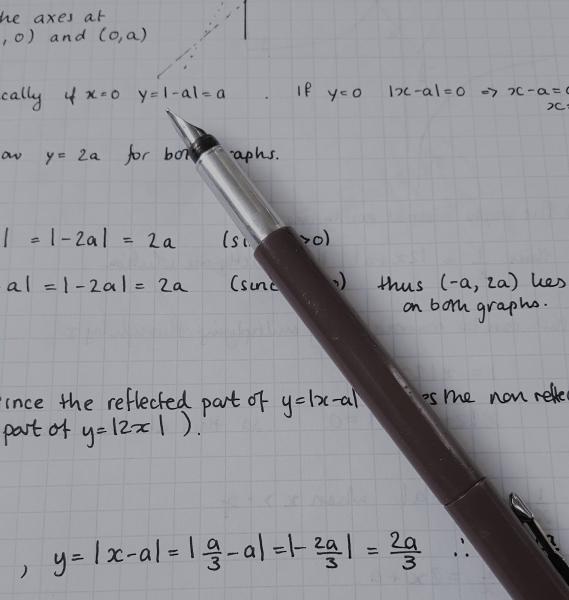 he axes at
, 0) and (0, a)
cally if x=0 y=|-a|=a . If y=0 |x-a|=0 => x-a=
x=
y= 2a for graphs.
| = |-2a| = 2a >0)
a| = |-2a| = 2a ) thus (-a, 2a) lies
on both graphs.
ince the reflected part of y=|x-a| es the non
part of y=|2x| ).
, y= |x-a| = |a/3 - a| = |- 2a/3| = 2a/3 ∴